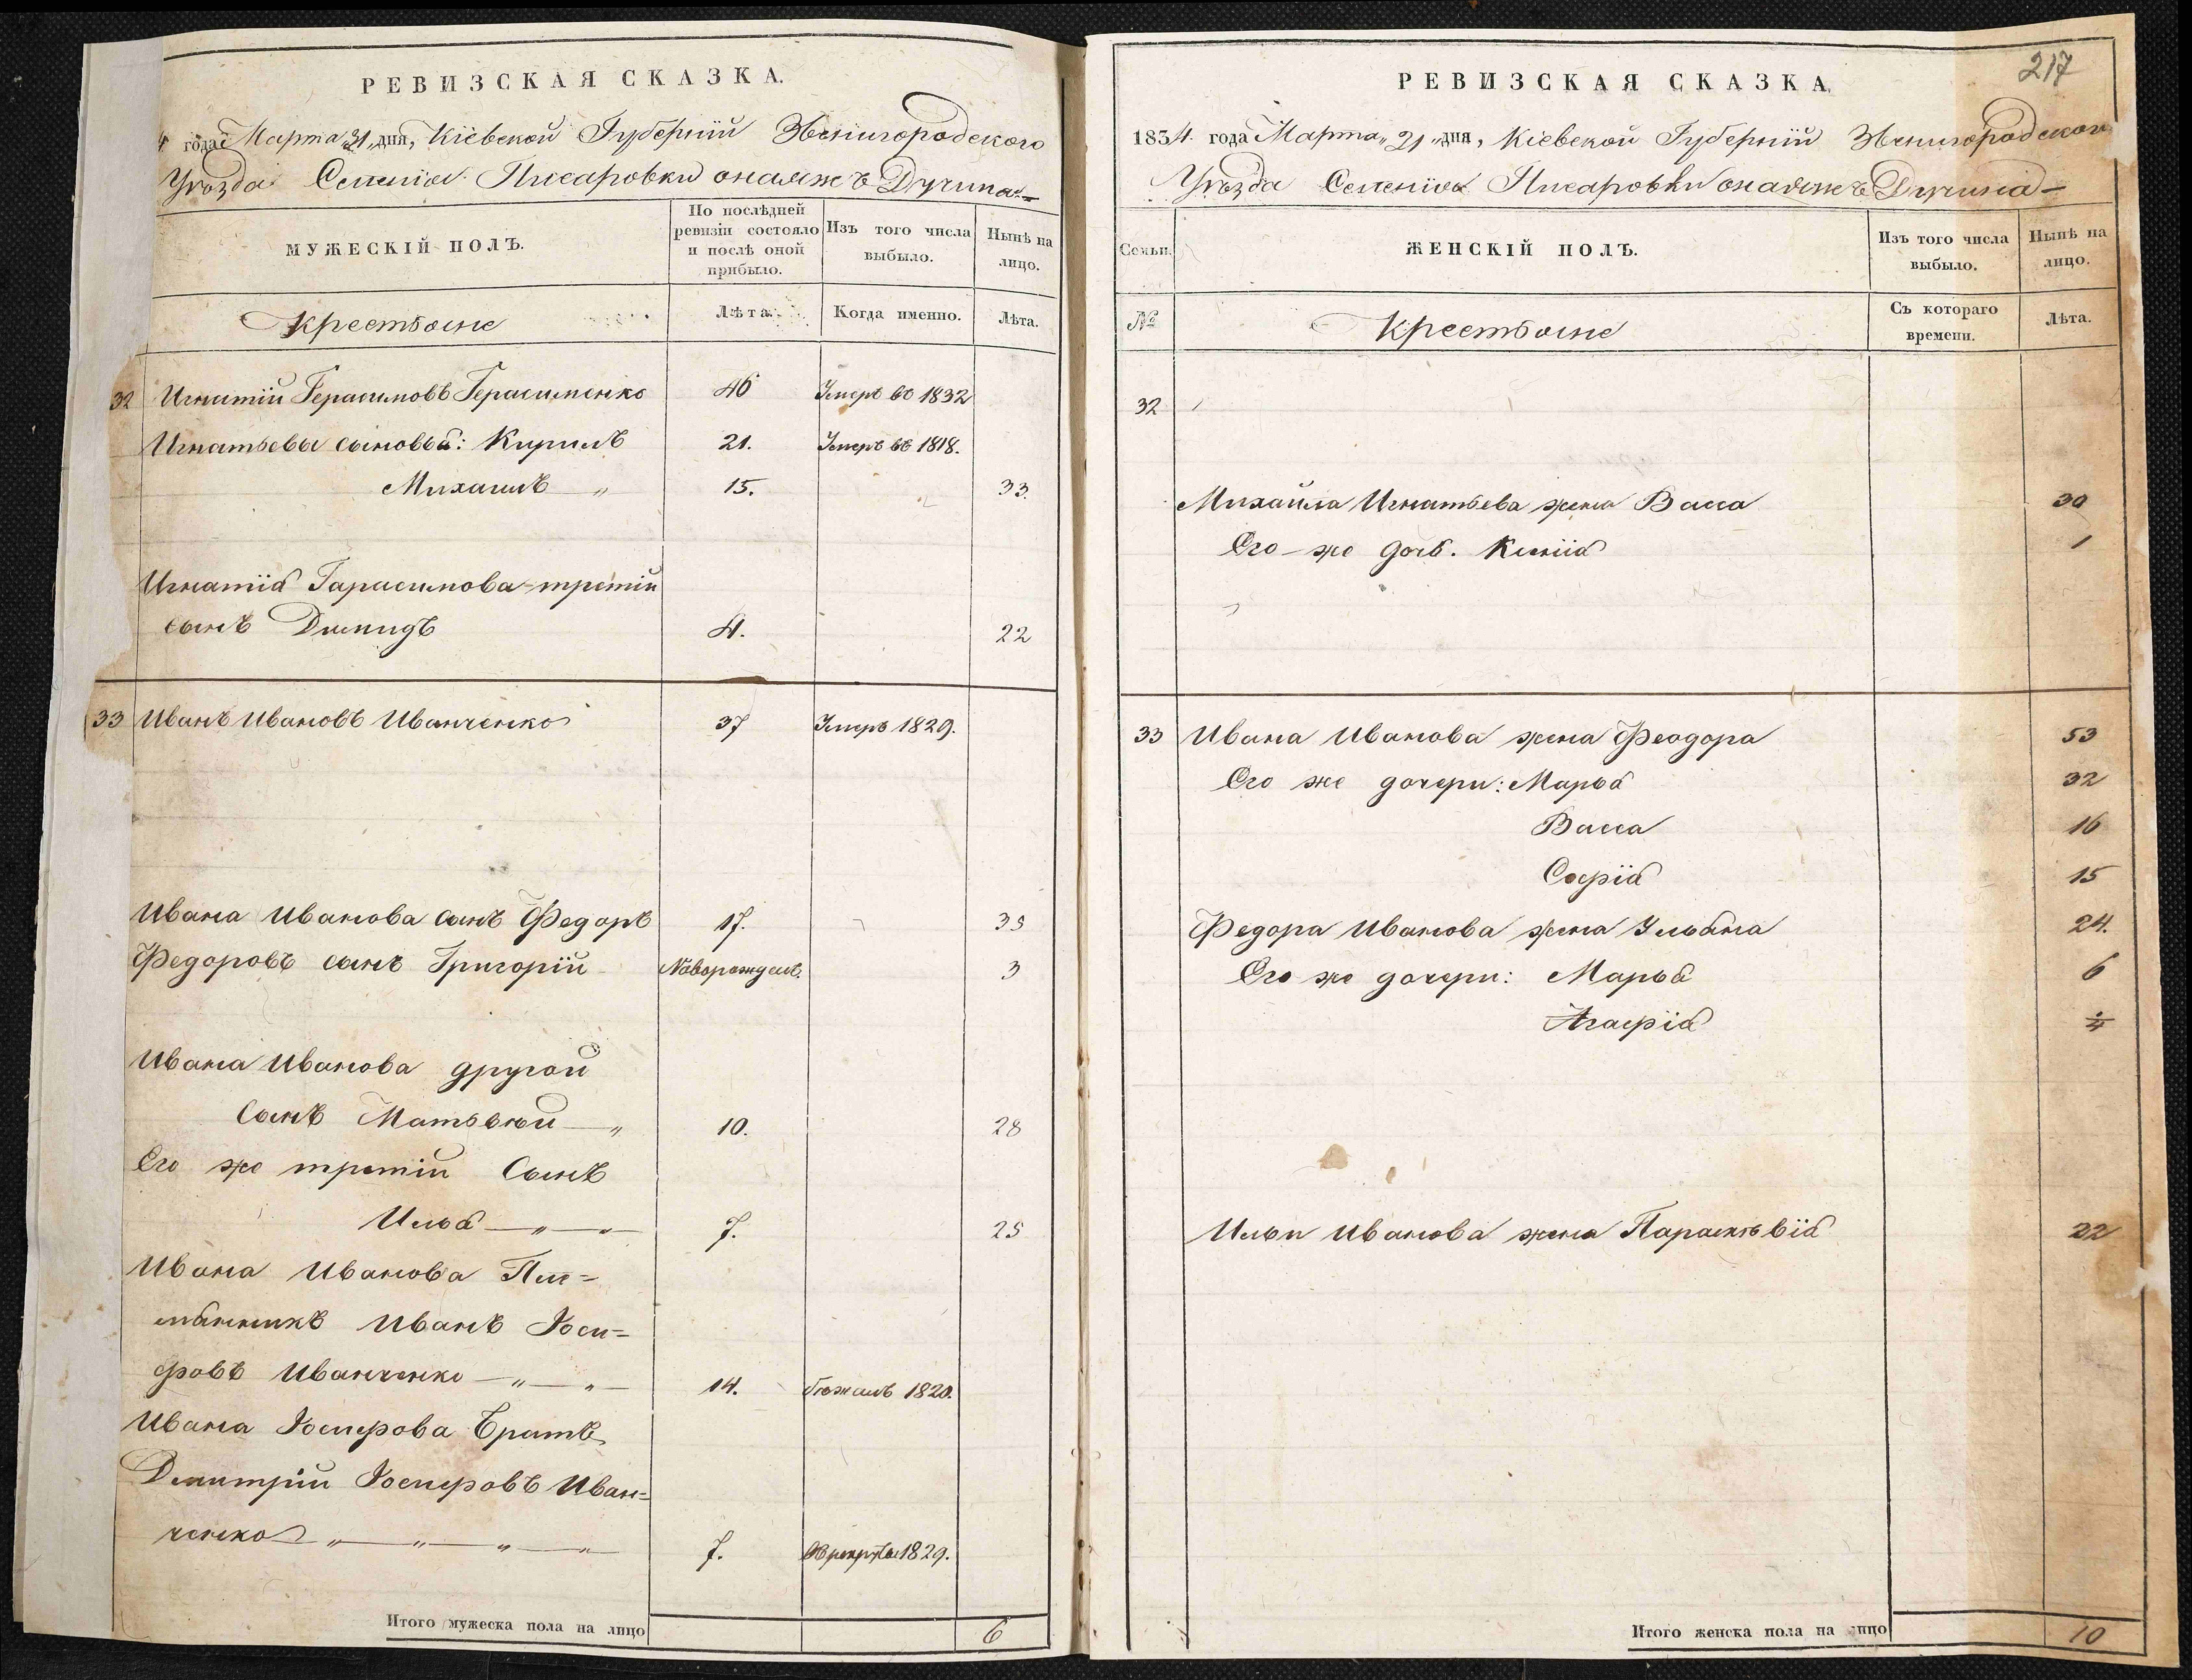 РЕВИЗСКАЯ СКАЗКА.
4 года Марта „21„ дня, Кіевской Губерніи Звенигородского
Уѣзда Селенія Писаровки онаяжъ Дучина
МУЖЕСКІЙ ПОЛЪ.
По послѣдней ревизіи состояло и послѣ оной прибыло.
Изъ того числа выбыло.
Нынѣ на лицо.
Крестьяне
Лѣта.
Когда именно.
Лѣта.
32 Игнатій Герасимовъ Герасименко 46 Умеръ въ 1832
Игнатьевы сыновья: Кирилъ 21. Умеръ въ 1818.
Михаилъ „ 15. 33.
Игнатія Гарасимова третій
сынъ Димидъ 4. 22
33 Иванъ Ивановъ Иванченко 37 Умеръ 1829.
Ивана Иванова сынъ Федоръ 17. 35
Федоровъ сынъ Григорій Новорожден. 3
Ивана Иванова другой
Сынъ Матвѣй — „ 10. 28
Его же третій Сынъ
Илья — „ — „ 7. 25
Ивана Иванова Пле=
мянникъ Иванъ Іоси=
фовъ Иванченко — „ — „ — 14. бѣжалъ 1820.
Ивана Іосифова Братъ
Дмитрій Іосифовъ Иван=
ченко „ — „ — „ — „ 7. въ рекруты 1829.
Итого мужеска пола на лицо 6
217
РЕВИЗСКАЯ СКАЗКА.
1834. года Марта „21„ дня, Кіевской Губерніи Звенигородского
Уѣзда Селенія Писаровки онаяжъ Дучина —
Семьи.
ЖЕНСКІЙ ПОЛЪ.
Изъ того числа выбыло.
Нынѣ на лицо.
№
Крестьяне
Съ котораго времени.
Лѣта.
32
Михайла Игнатьева жена Васса 30
Его же дочь. Ксенія 1
33 Ивана Иванова жена Феодора 53
Его же дочери: Марья 32
Васса 16
Софія 15
Федора Иванова жена Ульяна 24.
Его же дочери: Марья 6
Агафія
Ильи Иванова жена Параскѣвія 22
Итого женска пола на лицо 10